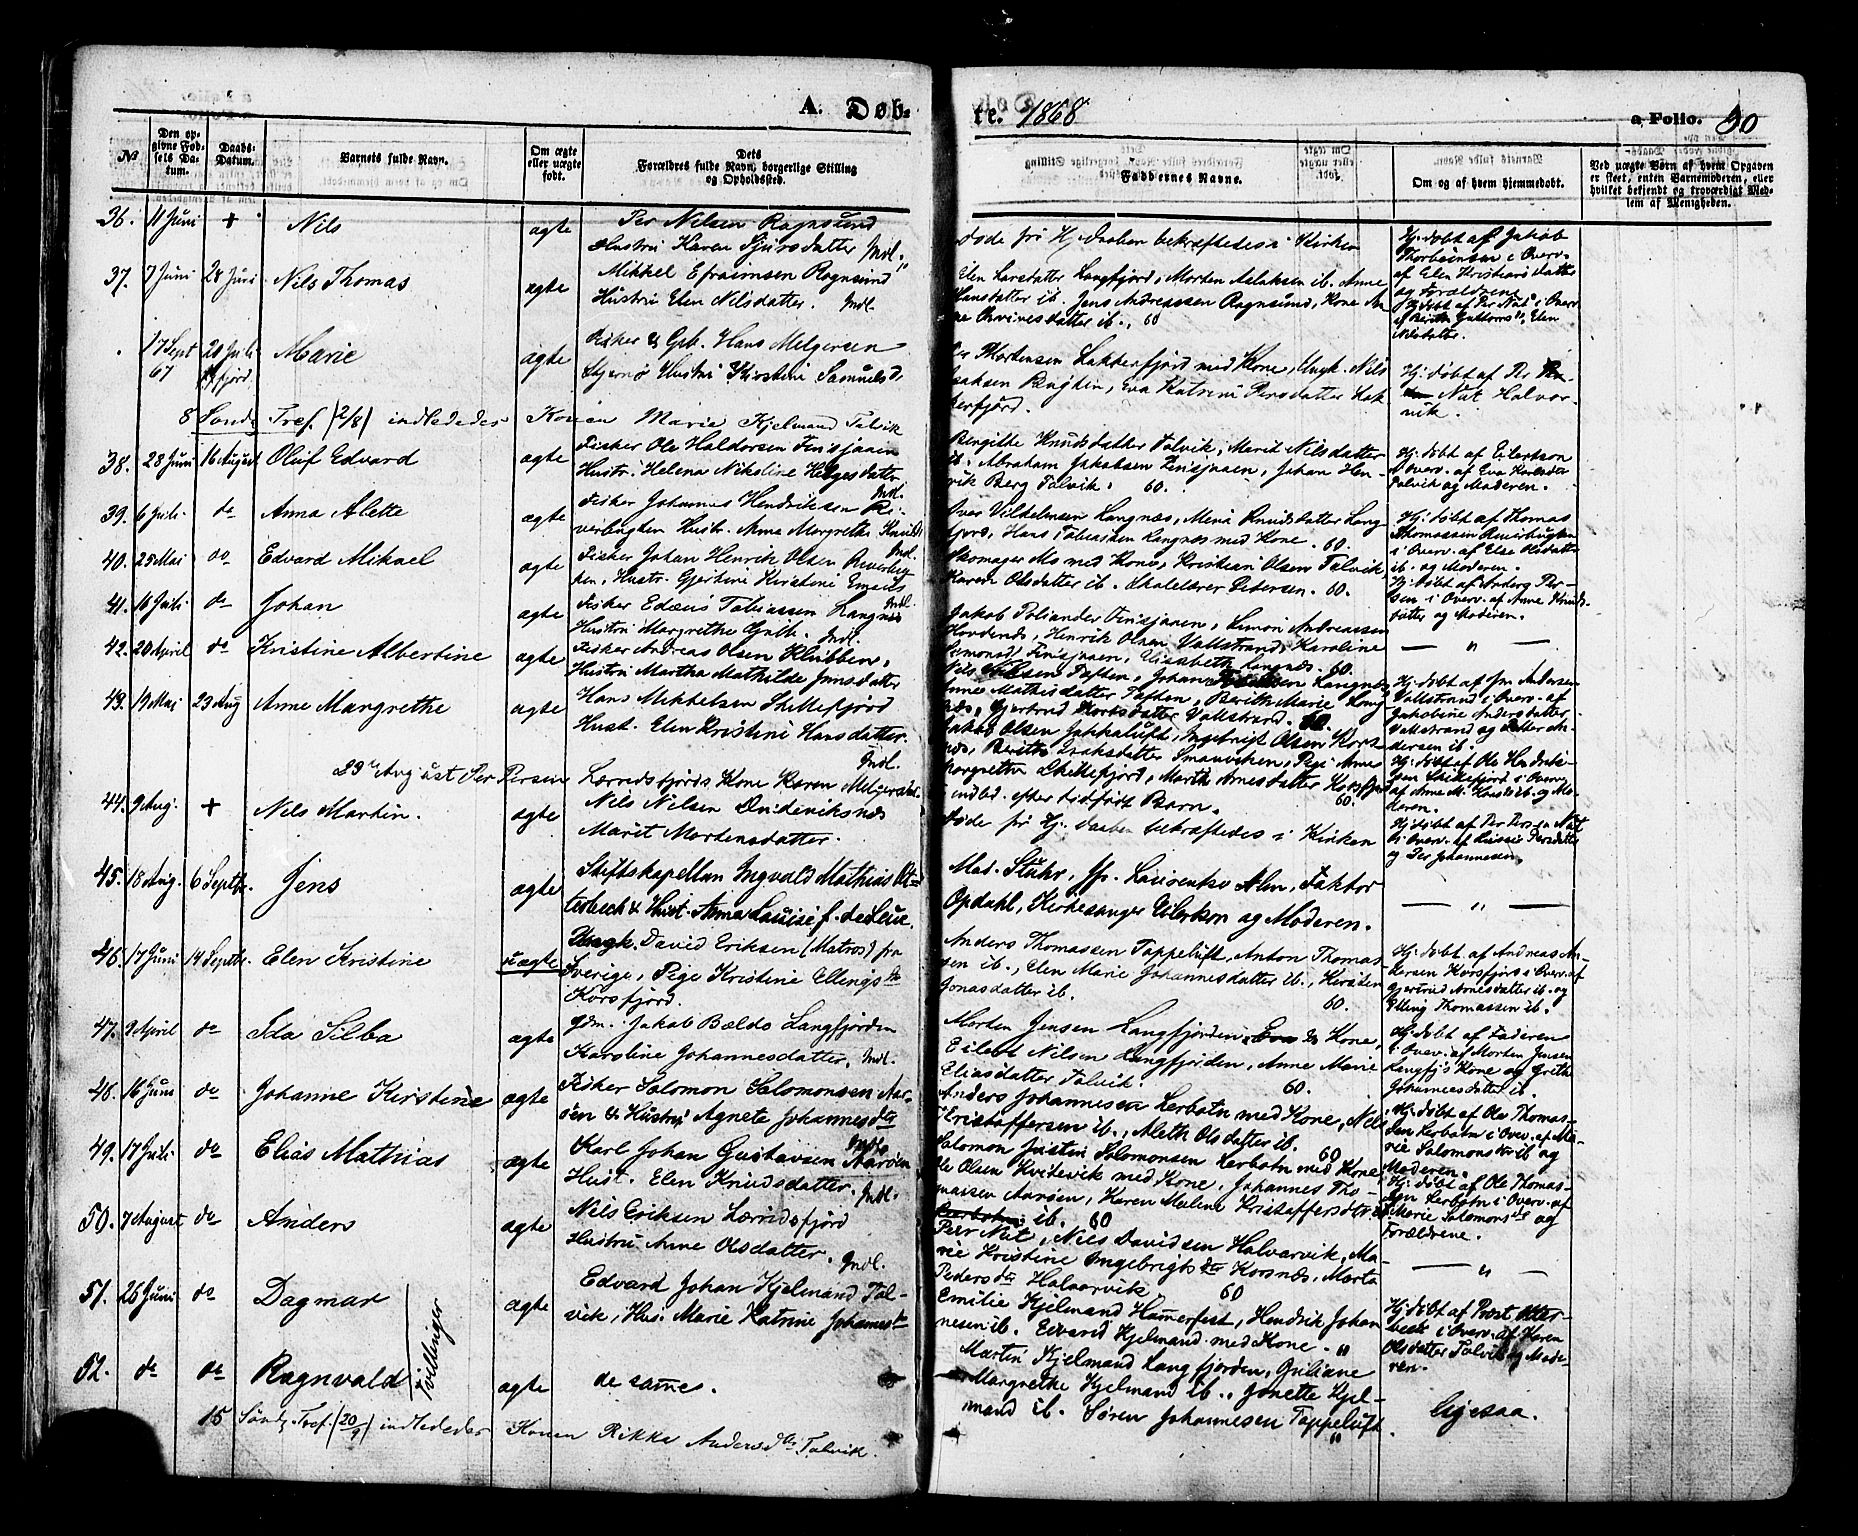 A. Døb-
te. 1868
a Folio. 50
No
Den opgivne Fødsels Datum.
Daabs-Datum.
Barnets fulde Navn.
Om ægte eller uægte født.
Dets Forældres fulde Navn, borgerlige Stilling og Opholdssted.
Faddernes Navne.
Om og af hvem hjemmedøbt.
Ved uægte Børn af hvem Opgaven er skeet, enten Barnemoderen, eller hvilket bekjendt og troværdigt Medlem af Menigheden.
36. 11 Juni + Nils ægte Per Nilsen Rognsund
Hustru Karen Sjursdatter Indl.
døde før Hj. daaben bekræftedes i Kirken
Hj. døbt af Jakob
37. 7 Juni 28 Juni Nils Thomas ægte Mikkel Efraimsen Rognsund
Hustru Elen Nilsdatter. Indl.
Elen Larsdatter Langfjord, Morten Aslaksen ib. Anne
Hansdatter ib. Jens Andreassen Rognsund, Kone An-
60
Hj. døbt af Per Nut i Overv.
Nilsdatter.
17 Sept 67 Marie ægte Fisker & Gbr. Hans Melgersen
Stjernø Hustru Kirstine Samuelsd.
Per Mortensen Lakkerfjord med Kone, Ungk. Nils
Isaksen Bugten, Eva Katrine Persdatter Lak-
kerfjord.
Hj. døbt af Per
Nut Halvor-
vik.
8 Sønd. Tref. (2/8) indlededes Konen Marie Kjelmand Talvik
38. 28 Juni 16 August Oluf Edvard ægte Fisker Ole Haldorsen Finsjaaen
Hustr. Helena Nikoline Helgesdatter Indl.
Bergitte Knudsdatter Talvik, Marit Nilsdatter
ib. Abraham Jakobsen Finsjaaen, Johan Hen-
rik Berg Talvik. 60.
Hj. døbt af Eilertsen
i Overv. af Eva Karlsdtr
Talvik og Moderen.
39. 6 Juli do Anna Alette ægte Fisker Johannes Hendriksen Ri-
verbugten Hustr. Anna Margrethe Knuds
Indl.
fjord, Hans Tobiassen Langnæs med Kone. 60.
Hj. døbt af Thomas
Thomassen
i Overv. af Else Olsdatter
ib. og Moderen.
40. 25 Mai do Edvard Mikael ægte Fisker Johan Henrik Olsen
Indl.
Skomager Mo med Kone, Kristian Olsen Talvik,
Karen Olsdatter ib. Skolelærer Petersen. 60.
Hj. døbt af Anders Per-
sen i Overv. af Anne Knuds-
datter og Moderen.
41. 16 Juli do Johan ægte Fisker Edæus Tobiassen Langnæs
Hustru Margrethe Indl.
Jakob Poliander Finsjaaen, Simon Andreassen
Henrik Olsen Vattstrand, Karoline
Simonsd. Finsjaaen, Elisabeth Langnæs. 60.
— " —
42. 20 April do Kristine Albertine ægte Fisker Andreas Olsen Klubben,
Hustru Martha Mathilde Jensdatter
Nils Nilsen Toften, Johan Langnæs
Anne Mathisdatter Toften, Berith Marie Lang-
næs, Gjertrud Larsdatter Vattstrand. 60.
Hj. døbt af Jens Andersen
Vattstrand i Overv. af
Jakobine Andersdatter
Vattstrand og Petter An-
dersen ib.
43. 19 Mai 23 Aug Anne Margrethe ægte Hans Mikkelsen Skillefjord
Hust. Elen Kristine Hansdatter.
Indl.
Jakob Olsen Jakkaluft, Ingebrigt Olsen Kors-
næs, Berith Isaksdatter Smaaviken, Pige Anne
Margrethe Skillefjord, Marth Arnesdatter Korsfjord
60.
Hj. døbt af Ole Hendrik-
sen Skillefjord i Overv.
23de August Per Persen Lærredsfjords Kone Karen Melgersdtr.
indled. efter tidfødt Barn.
44. 9 Aug. + Nils Martin. ægte Nils Nilsen
Marit Mortensdatter.
døde før Hj. daaben bekræftedes i Kirken
Hj. døbt af Per Persen Nut
og Per Johannesen
45. 18 Aug. 6 Septbr. Jens ægte Stiftskapellan Ingvald Mathias Ot-
terbech & Hust. Anna Louise f. de Seue.
Mad. Stuhr, Jfr. Laurentse Alm, Faktor
Opdahl, Kirkesanger Eilertsen og Moderen.
— " —
46. 17 Juni 14 Septbr. Elen Kristine uægte Ungk. David Eriksen (Matros) fra
Sverige, Pige Kristine Ellingsdr
Korsfjord.
Anders Thomassen Tappeluft, Anton Thomas-
sen ib., Elen Marie Johannesdatter ib., Kirsten
Jonasdatter ib. 60.
Hj. døbt af Andreas An-
dersen Korsfjord i Overv. af
Gjertrud Arnesdatter ib. og
Elling Thomassen ib.
47. 9 April do Ida Silba ægte Gdm. Jakob Bældo Langfjorden
Karoline Johannesdatter. Indl.
Morten Jensen Langfjorden & Kone,
Eilert Nilsen Langfjorden, Anne Marie
Eliasdatter Talvik. 60.
Hj. døbt af Faderen
i Overv. af Morten Jensen
Langfj's Kone og Grethe
Johannesdatter ib.
48. 16 Juni do Johanne Kirstine ægte Fisker Salomon Salomonsen Aar-
øen & Hustru Agnete Johannesdtr
Indl.
Anders Johannesen Lerbotn med Kone, Nils
Kristoffersen ib., Aleth Olsdatter ib. 60
Hj. døbt af Ole Thomas-
sen Lerbotn i Overv. af Ma-
rie Salomonsdtr ib og
Moderen.
49. 17 Juli do Elias Mathias ægte Karl Johan Gustavsen Aarøen
Hust. Elen Knudsdatter. Indl.
Salomon Justin Salomonsen Lerbotn med Kone,
Ole Olsen Kvitevik med Kone, Johannes Tho-
masen Aarøen, Karen Malene Kristoffersdtr
ib. 60
Hj. døbt af Ole Thomas-
sen Lerbotn i Overv. af
Marie Salomonsdr og
Forældrene.
50. 7 August do Anders ægte Nils Eriksen Lærredsfjord
Hustru Anne Olsdatter. Indl.
Peer Nut, Nils Davidsen Halvarvik, Ma-
rie Kristine Ingebrigtsdtr Korsnæs, Marta
Pedersdtr Halvarvik. 60
— " —
51. 26 Juni do Dagmar ægte Edvard Johan Kjelmand Tal-
vik, Hus. Marie Katrine Johannesdr
Tvillinger
Emilie Kjelmand Hamerfest, Hendrik Johan-
nesen ib. Edvard Kjelmand med Kone. "
Hj. døbt af Prost Otter-
bech i Overv. af Karen
Olsdatter Talvik og Mode-
ren.
52. do do Ragnvald ægte de samme.
Martin Kjelmand Langfjorden, Guliane
Margrethe Kjelmand ib., Jonette Kjel-
mand ib. Søren Johannesen Tappeluft. "
Ligesaa.
15 Sønd. Tref. (20/9) indlededes Konen Rikke Andersdtr Talvik.